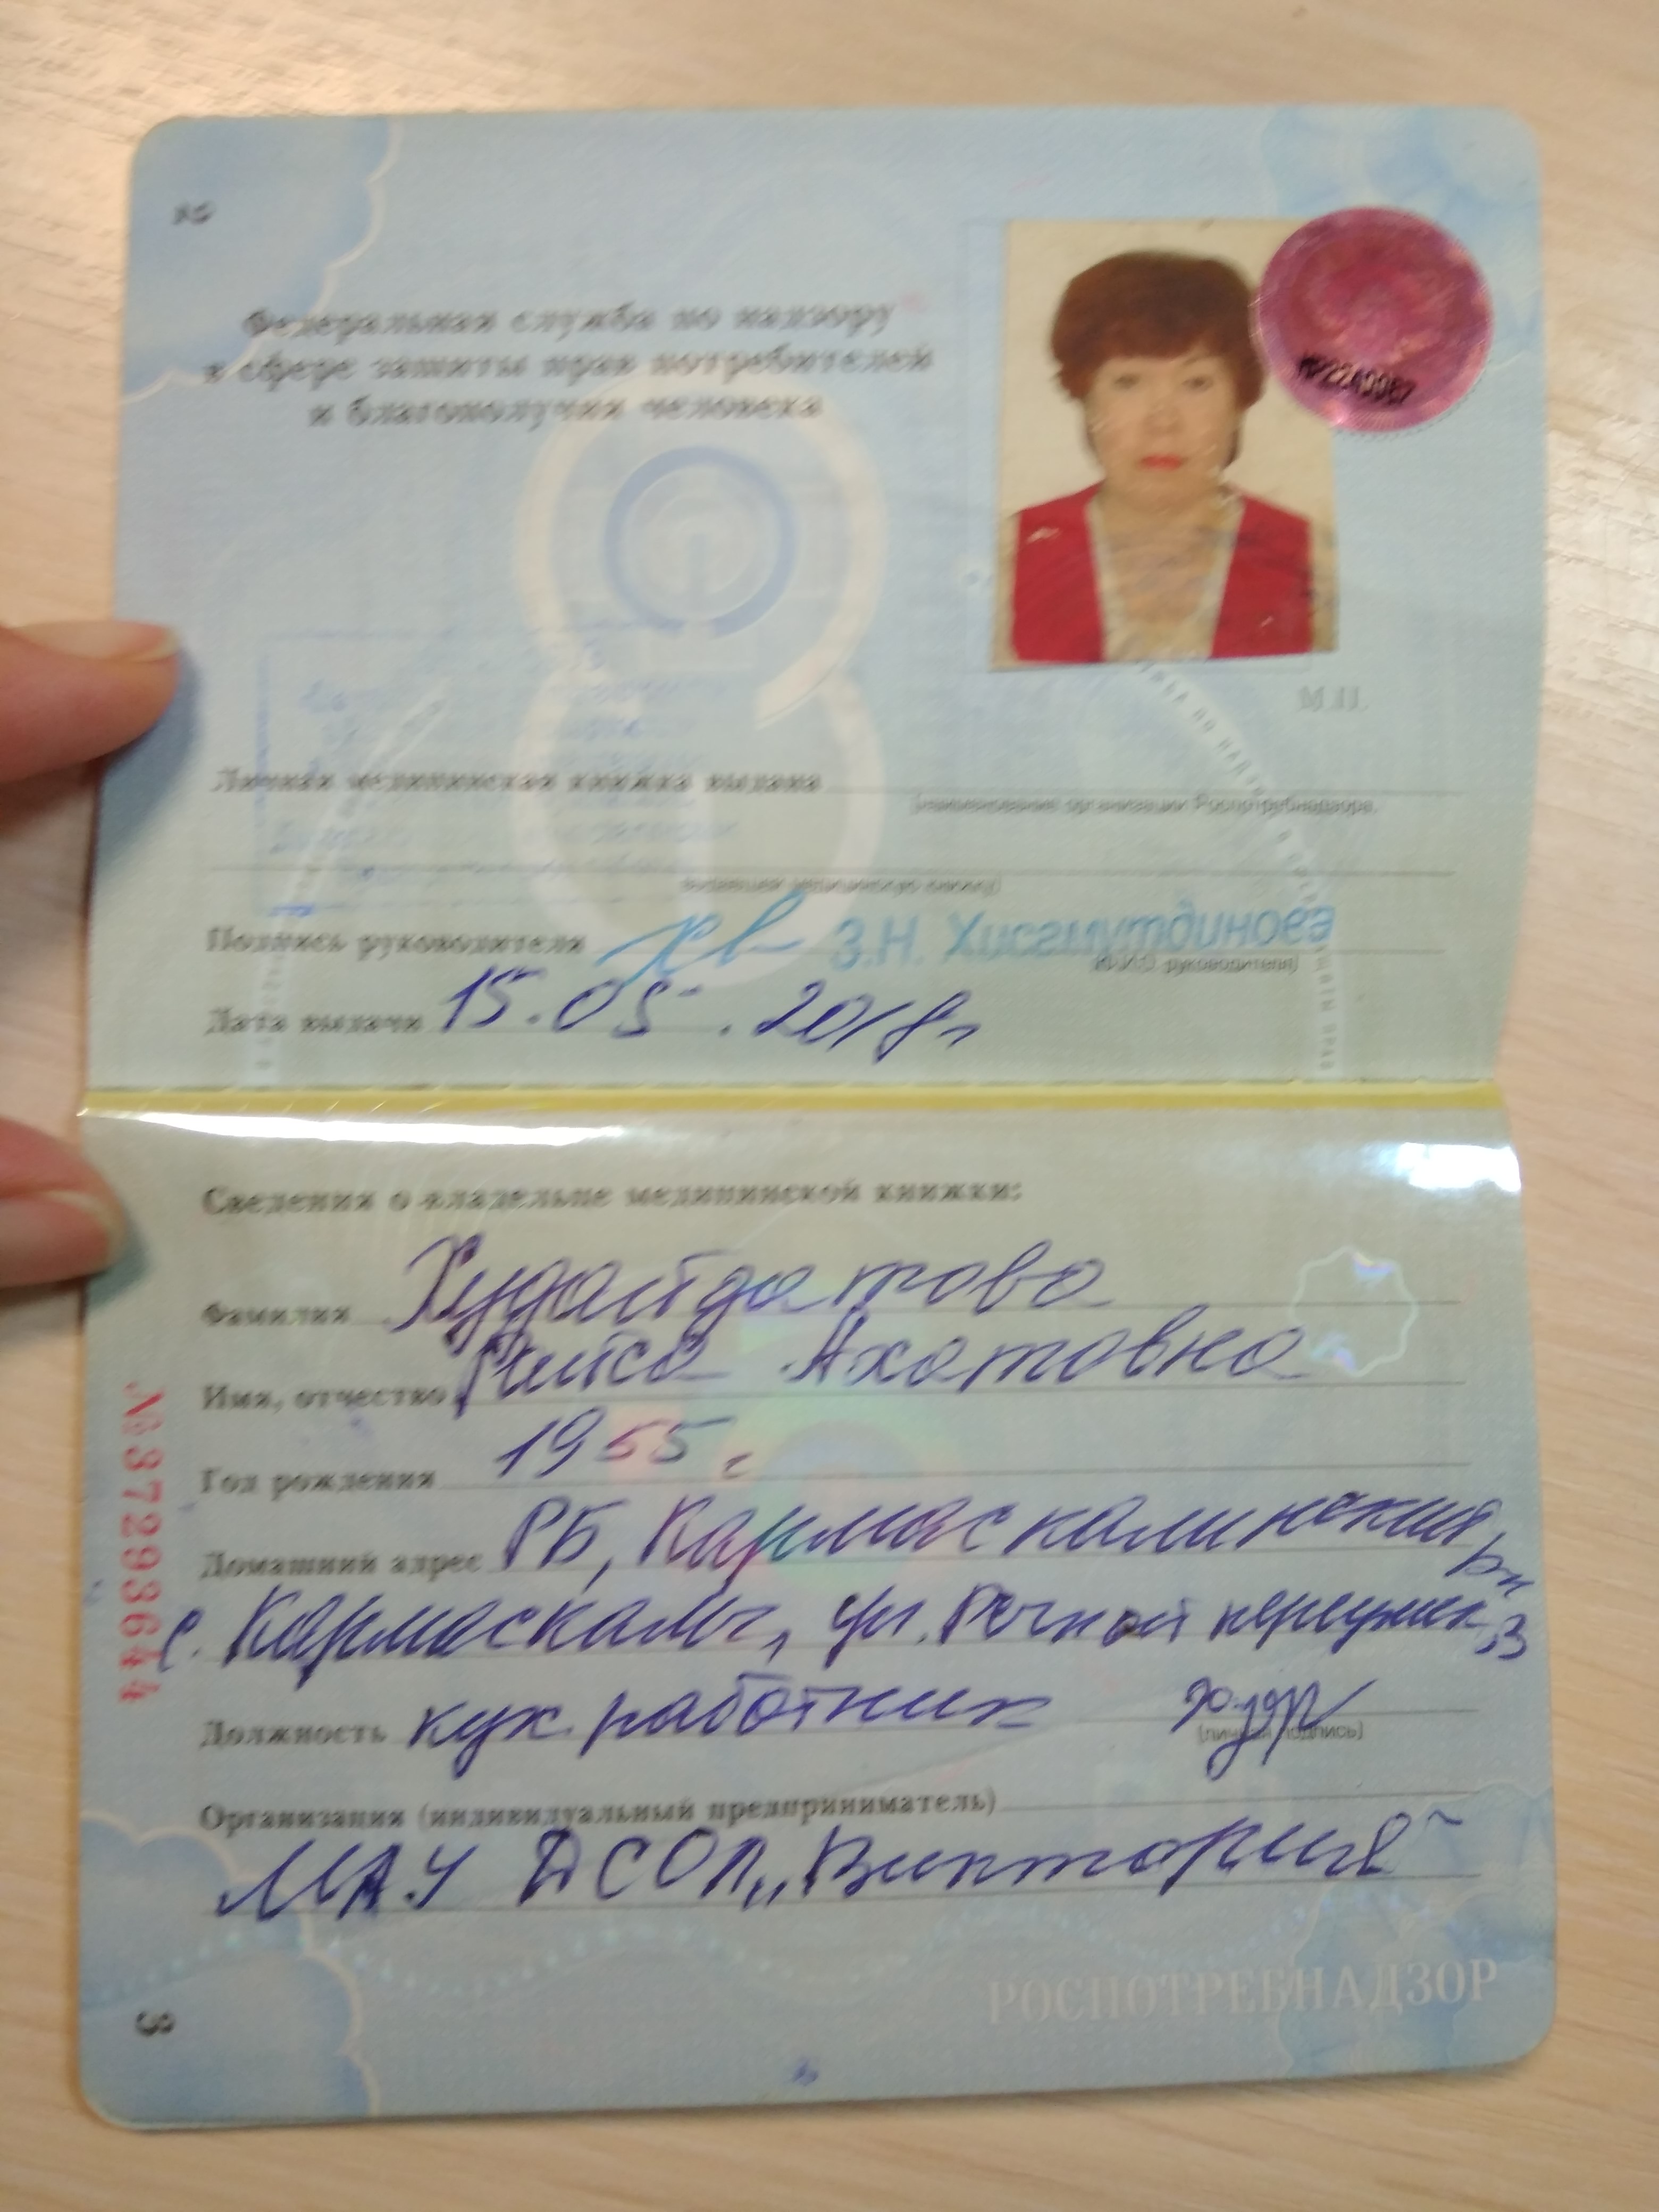 2
Федеральная служба по надзору
в сфере защиты прав потребителей
и благополучия человека
№2249957
М.П.
Личная медицинская книжка выдана
(наименование организации Роспотребнадзора,
выдавшей медицинскую книжку)
Подпись руководителя З.Н. Хисамутдинова
(Ф.И.О. руководителя)
Дата выдачи 15.05.2018г
Сведения о владельце медицинской книжки:
Фамилия Худайдатова
Имя, отчество Ахатовна
Год рождения 1955 г
Домашний адрес РБ, Кармаскалинский рн
с. Кармаскалы, ул. Речной 3
Должность кух. работник
(личная подпись)
Организация (индивидуальный предприниматель)
МАУ ДСОЛ „Виктория"
№3729364
РОСПОТРЕБНАДЗОР
3